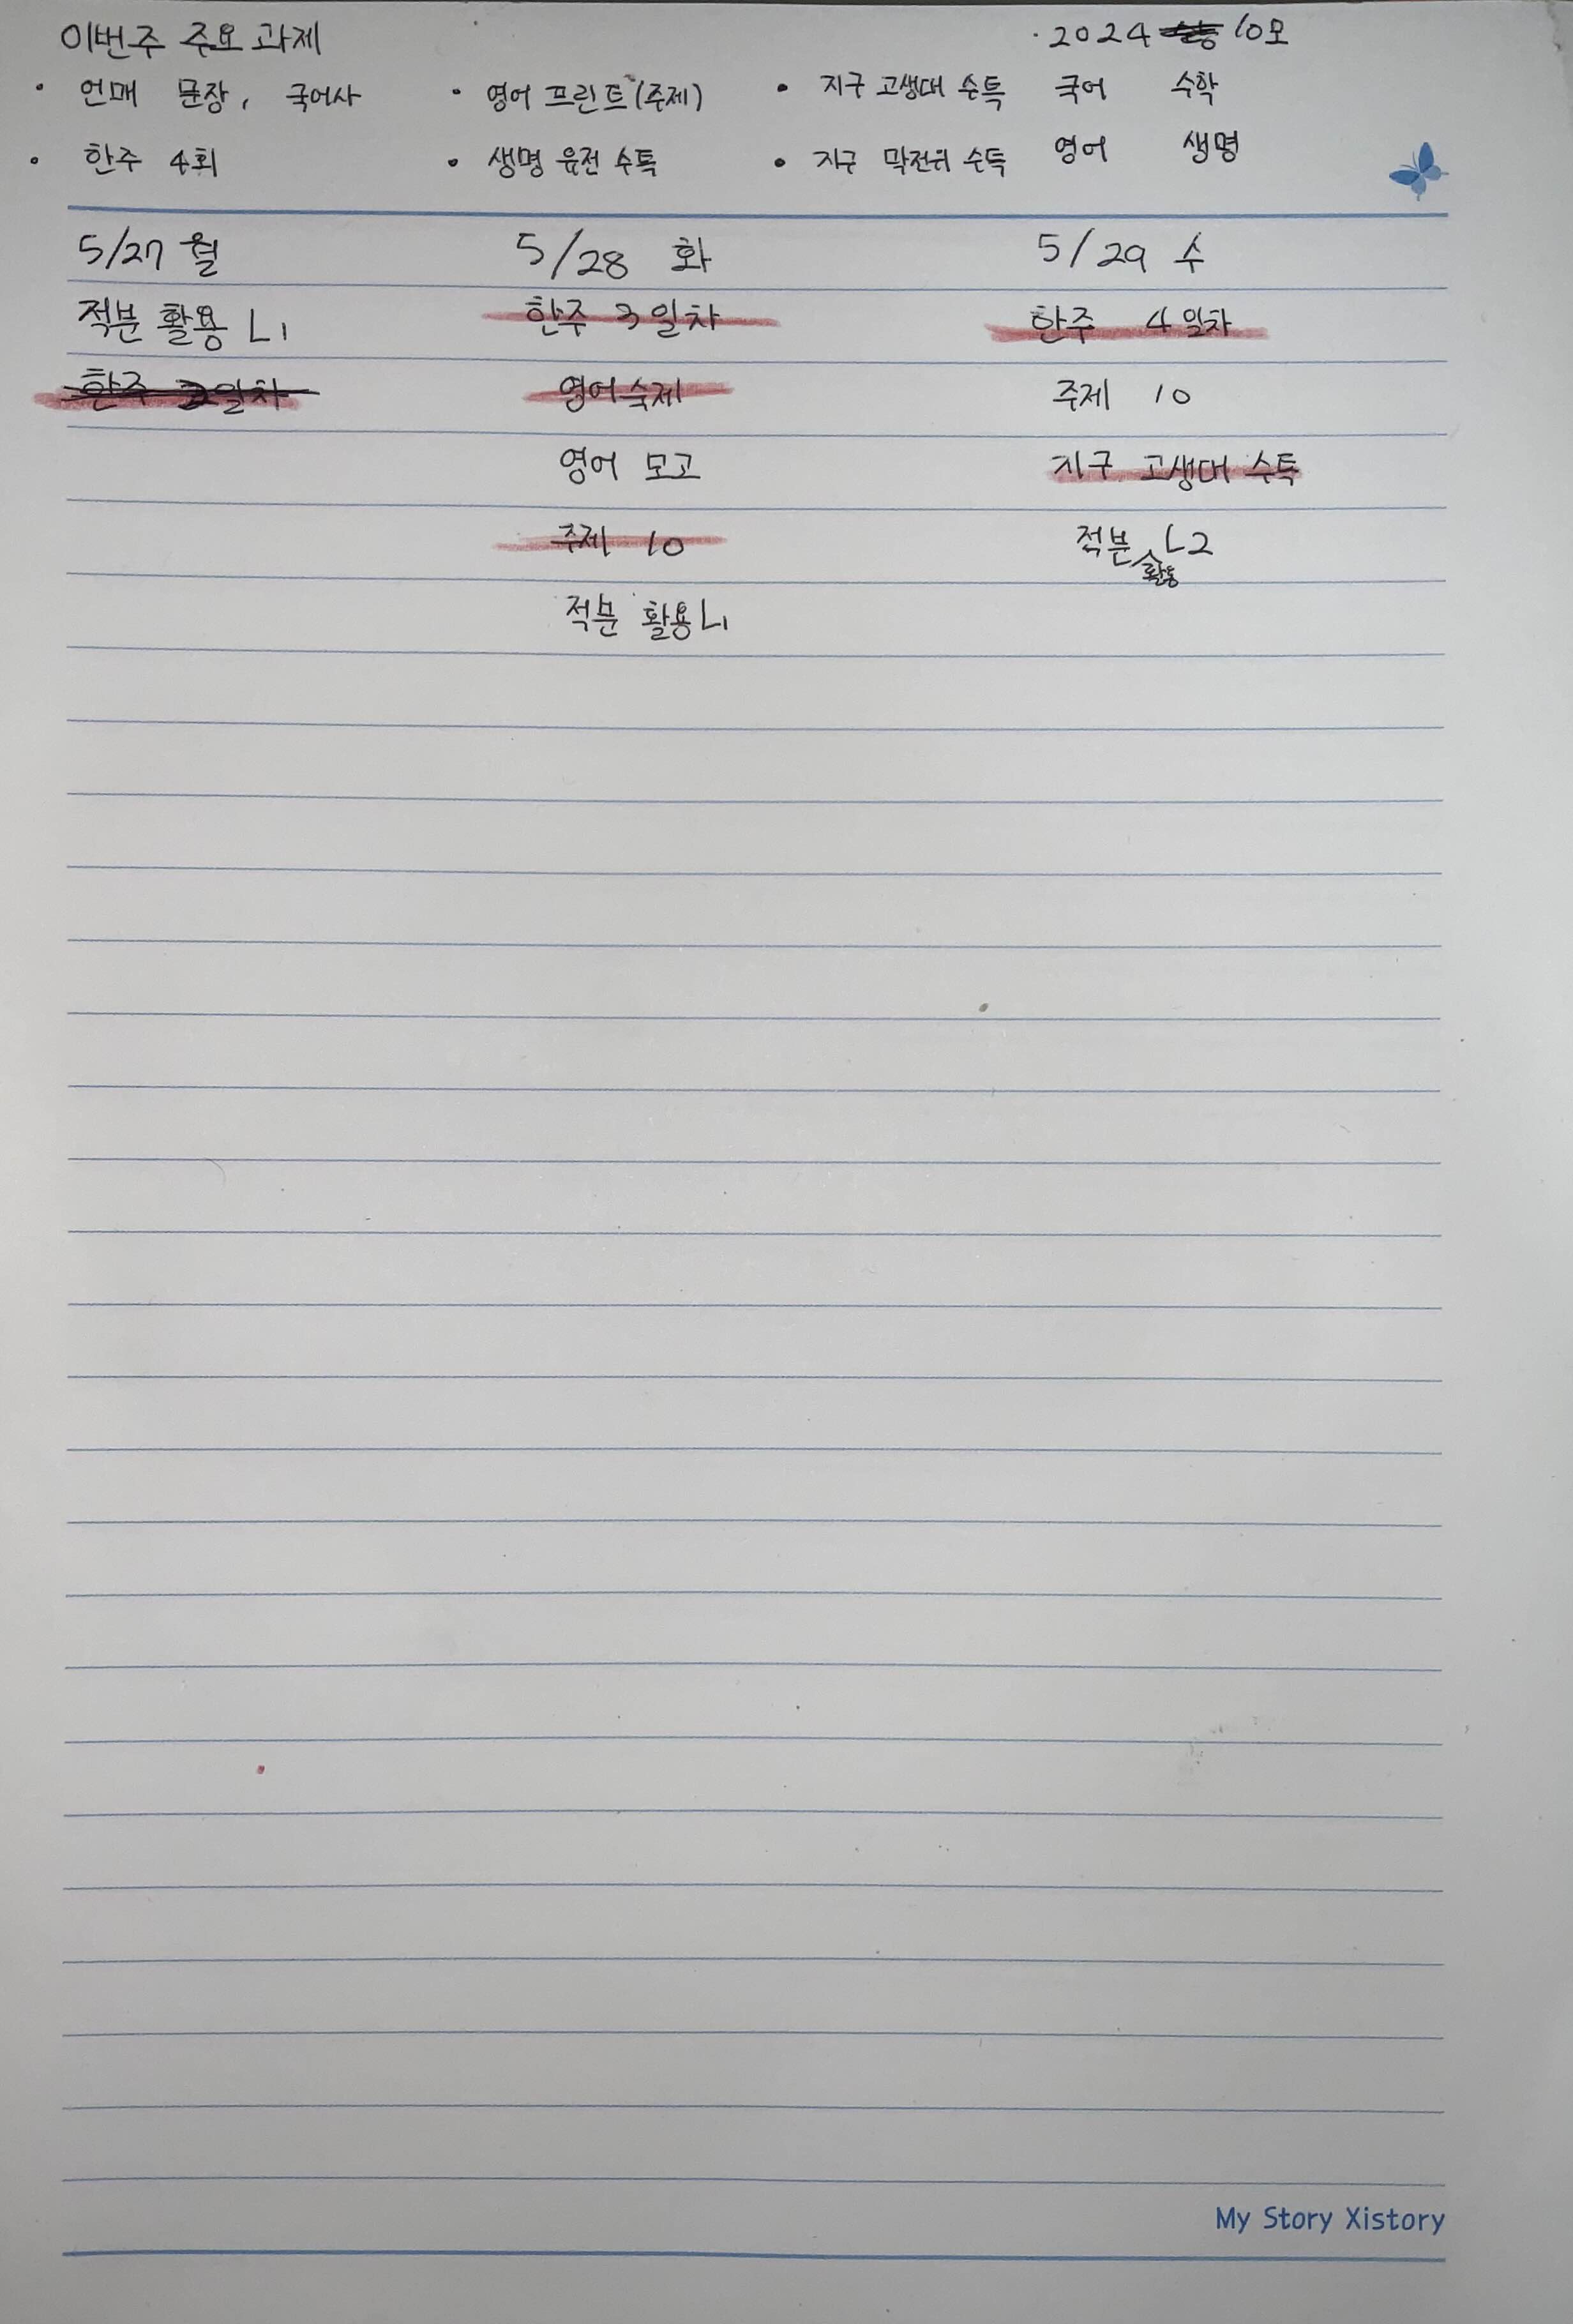 이번주 주요 과제
· 2024 10모
· 언매 문장, 국어사 · 영어 프린트(주제) · 지구 고생대 수특 국어 수학
· 한주 4회 · 생명 유전 수특 · 지구 막전위 수특 영어 생명
5/27 월 5/28 화 5/29 수
적분 활용 L1 한주 3일차 한주 4일차
한주 2일차 영어숙제 주제 10
영어 모고 지구 고생대 수특
주제 10 적분 활용 L2
적분 활용 L1
My Story Xistory